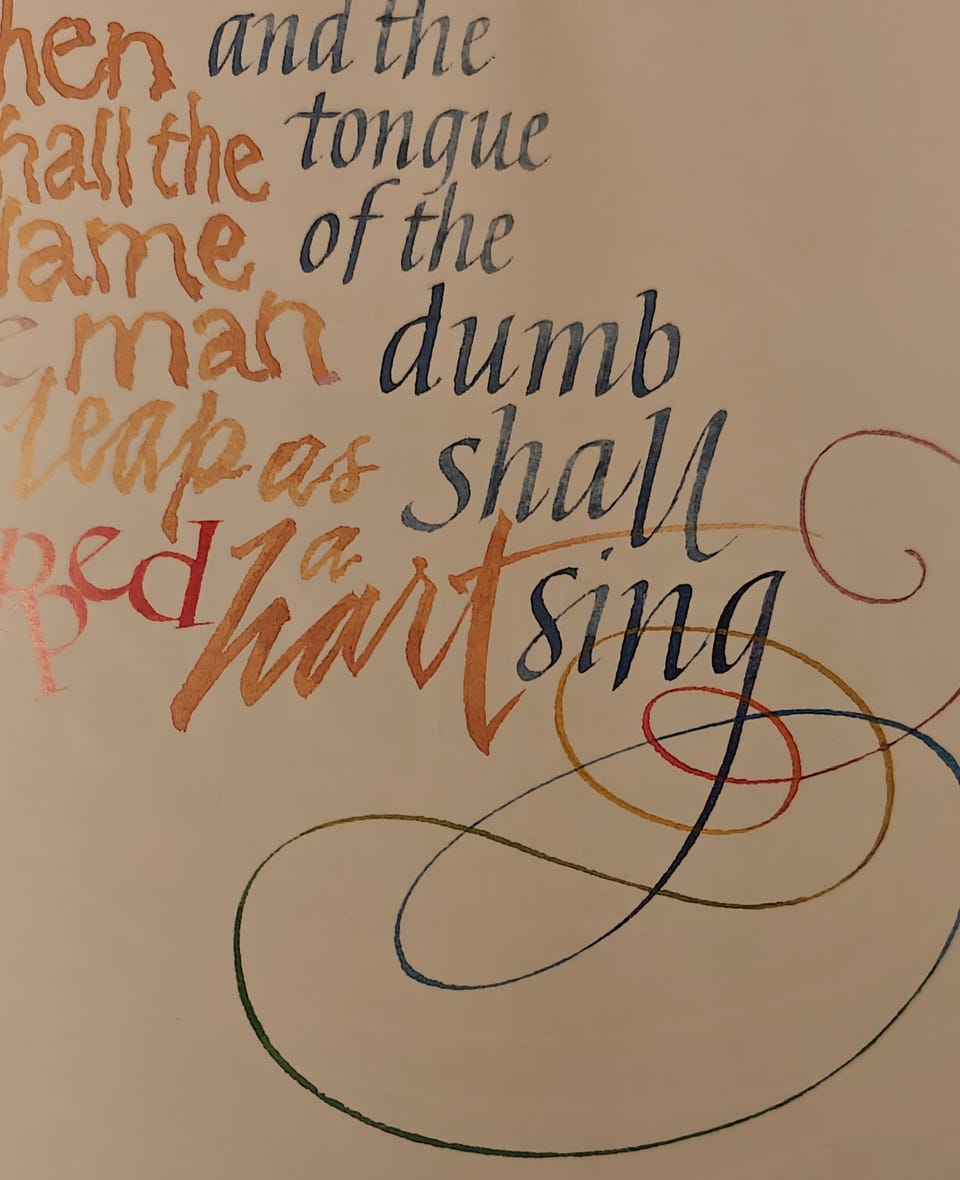 hen
hall the
lame
man
leap as
a
hart
and the
tongue
of the
dumb
shall
sing
ped